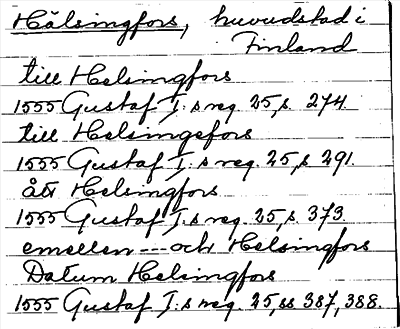 Hälsingfors, huvudstad i
Finland
till Helsingfors
1555 Gustaf I:s reg. 25, s. 274
till Helsingefors
1555 Gustaf I:s reg. 25, s. 291.
ått Helsingfors
1555 Gustaf I:s reg. 25, s. 373
emellen --- och Helsingfors
Datum Helsingfors
1555 Gustaf I:s reg. 25, ss 387, 388.